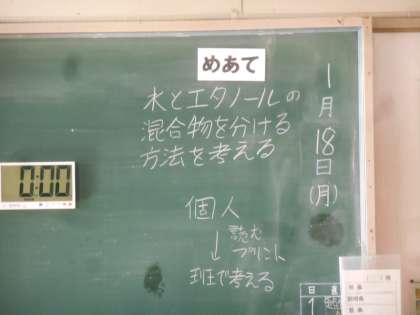 めあて
1月18日(月)
水とエタノールの
混合物を分ける
方法を考える
個人
↓ 読む
プリント
班で考える
0:00
日直
1